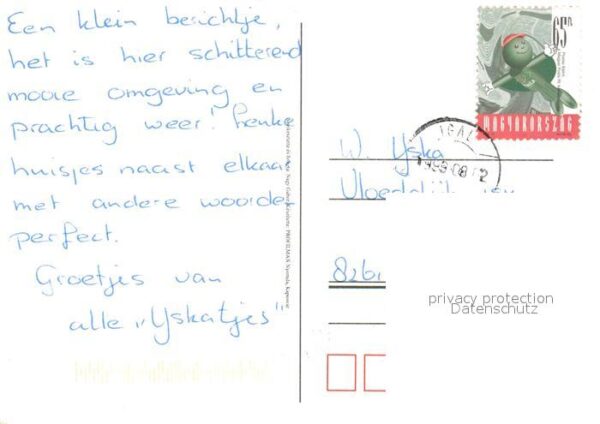 Een klein berichtje,
het is hier schitterend
mooie omgeving en
prachtig weer! Leuke
huisjes naast elkaar
met andere woorden
perfect.
Groetjes van
alle „Yskatjes"
65Ft
MAGYARORSZÁG
IGAL
W. Yska
8261
privacy protection
Datenschutz